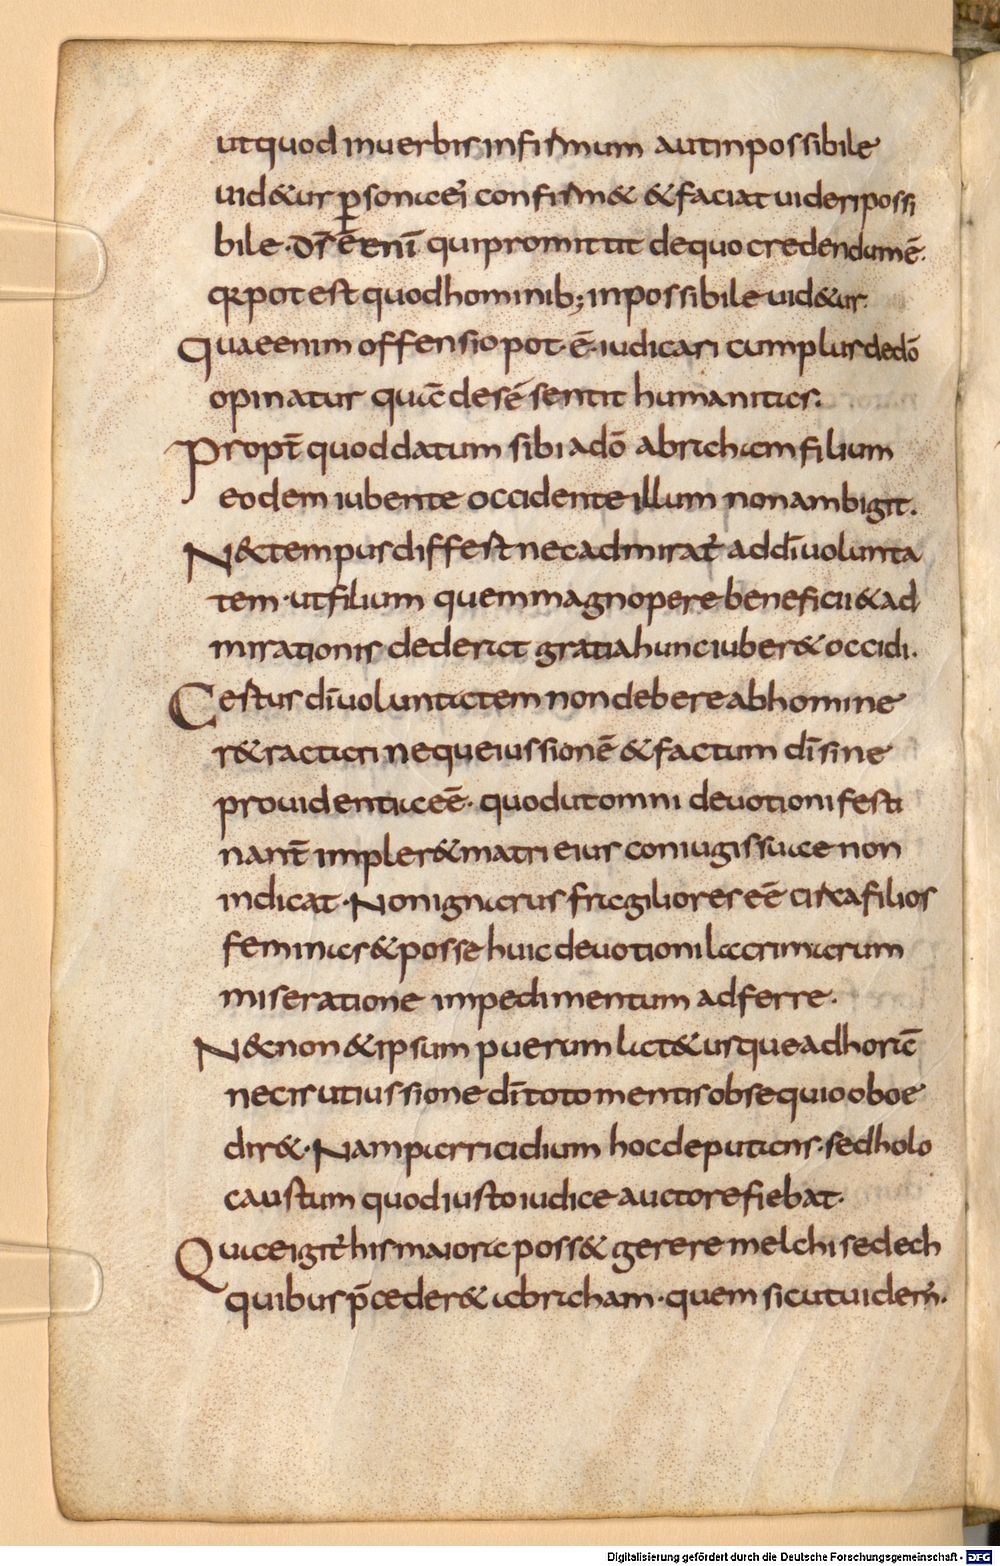 utquod inuerbis infirmum autinpossibile
uid&ur p̲sonaeei confirm& &faciat uideriposſi
bile · dr̄s ē enī quipromittit dequo credendumē·
q̄ potest quodhominib; inpossibile uid&ur·
Quaeenim offensio pot· ē· iudicari cumplusdedō
opinatur quā desē sentit humanitas·
Propt̄ quoddatum sibi adō abraham filium
eodem iubente occidente illum nonambigit·
N&tempusdiffert necadmirat̄ addīuolunta
tem · utfilium quemmagnopere beneficii&ad
mirationis dederat gratiahunciuber& occidi·
Certus dīuoluntatem nondebereabhomine
r&ractari nequeiussionē &factum dīsine
prouidentiaeē· quodutomni deuotionifesti
nant̄ impler&matri eius coniugissuae non
indicat · Nonignarus fragiliores eē circafilios
feminas&posse huic deuotionilacrimarum
miseratione impedimentum adferre·
N&non&ipsum puerum lat&usqueadhorā
necis utiussione dītoto mentisobsequiooboe
dir&· Namparricidium hocdeputans· sedholo
caustum quodiustoiudice auctorefiebat·
Quaeigit̄ hismaiora poss& gerere melchisedech
quibus p̄ceder& abraham · quem sicutuidem̄·
Digitalisierung gefördert durch die Deutsche Forschungsgemeinschaft - DFG